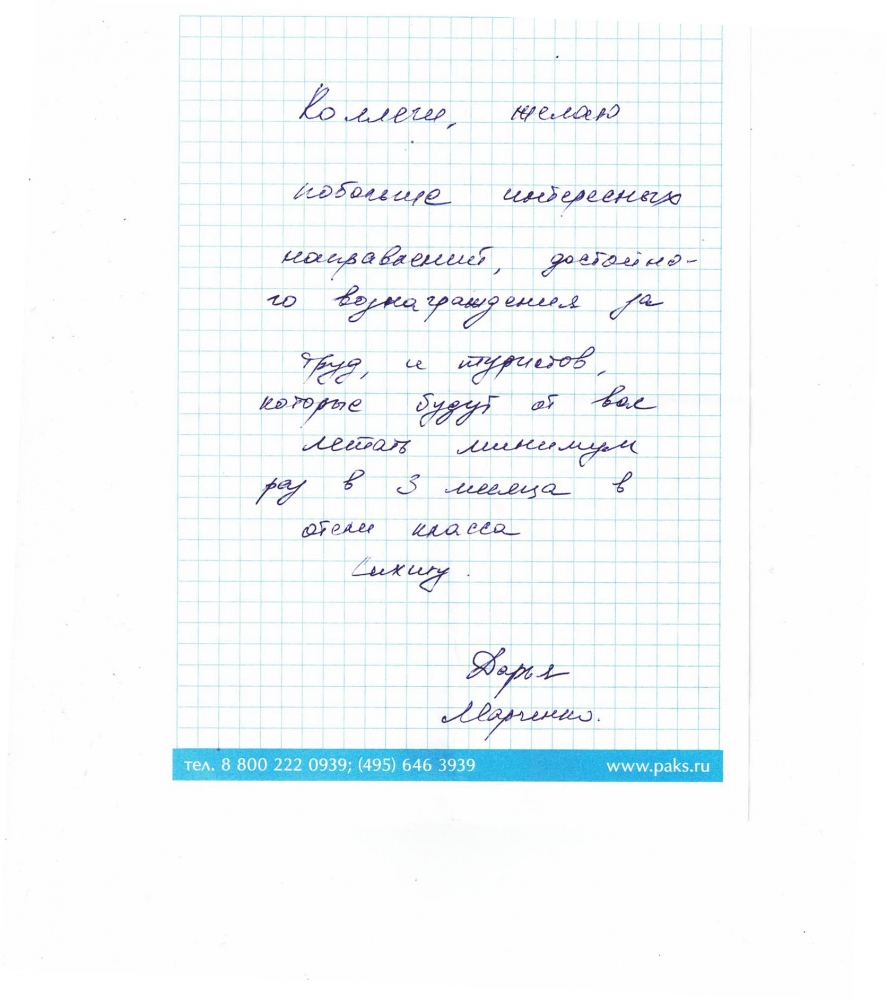 Коллеги, желаю
побольше интересных
направлений, достойно-
го вознаграждения за
труд, и туристов,
которые будут от вас
летать минимум
раз в 3 месяца в
отели класса
Дарья
Марченко.
тел. 8 800 222 0939; (495) 646 3939
www.paks.ru